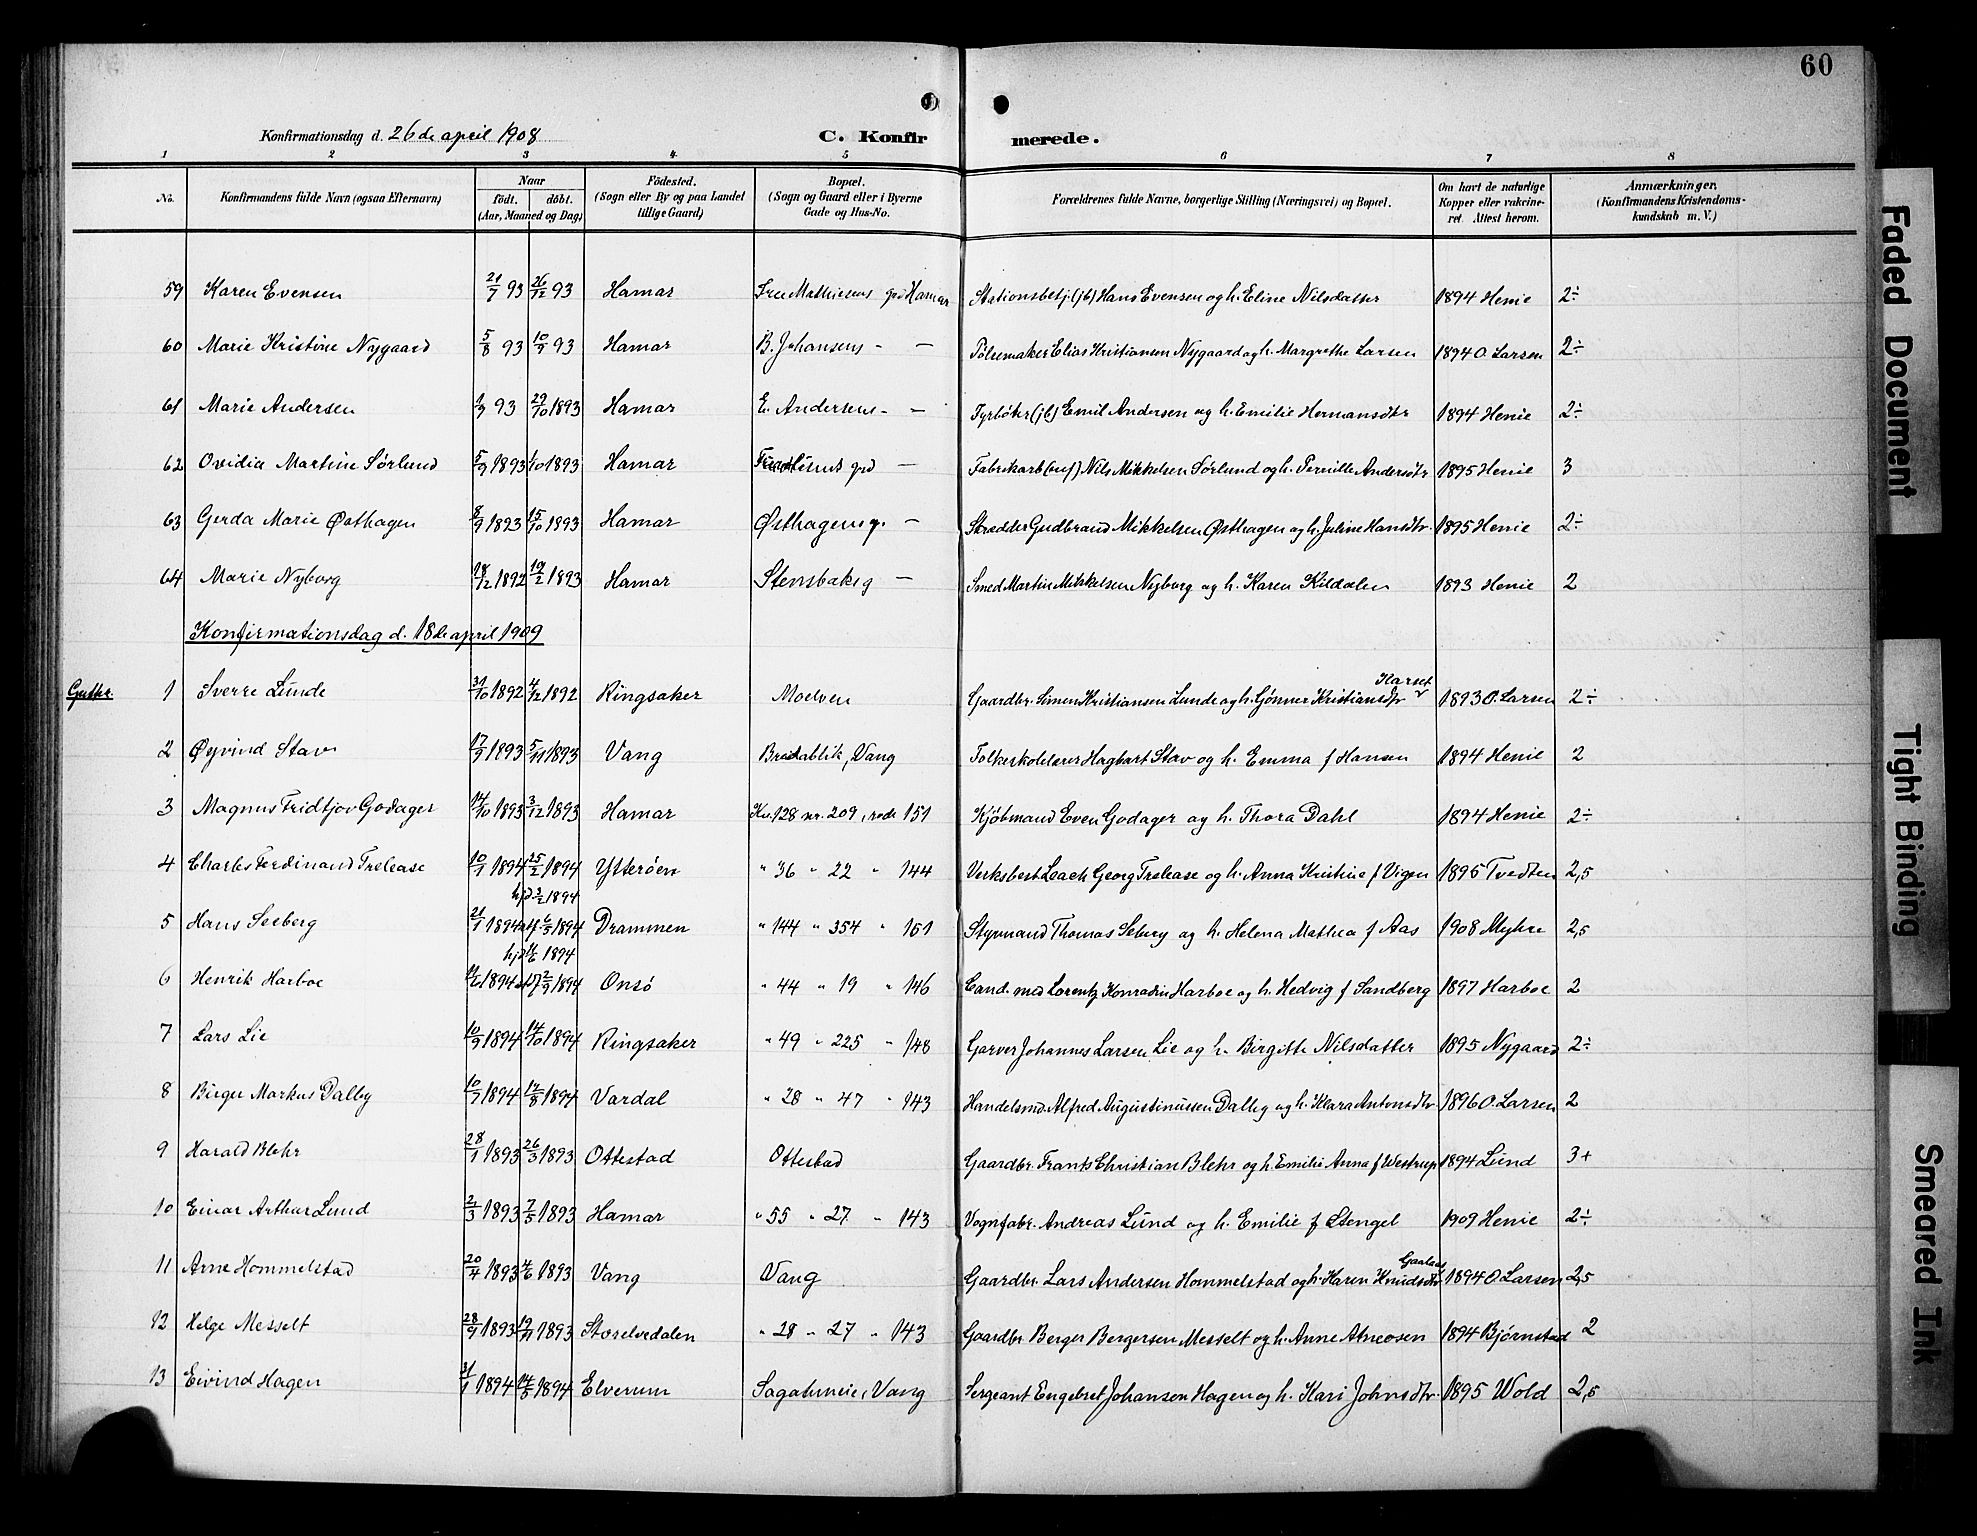 60
Konfirmationsdag d. 26 de april 1908
C. Konfirmerede.
1 2 3 4 5 6 7 8
No. Konfirmandens fulde Navn (ogsaa Efternavn) Naar født. døbt. (Aar, Maaned og Dag) Fødested. (Sogn eller By og paa Landet tillige Gaard) Bopæl. (Sogn og Gaard eller i Byerne Gade og Hus-No. Forældrenes fulde Navne, borgerlige Stilling (Næringsvei) og Bopæl. Om havt de naturlige Kopper eller vakcineret. Attest herom. Anmærkninger. (Konfirmandens Kristendomskundskab m. V.)
59 Karen Evensen 21/7 93 26/12 93 Hamar Mathisens gd Hamar Stationsbetj. (jb) Hans Evensen og h. Eline Nilsdatter 1894 Henie 2÷
60 Marie Kristine Nygaard 5/8 93 10/9 93 Hamar B. Johansens - — Pølsemaker Elias Kristiansen Nygaard og h. Margrethe Larsen 1894 O. Larsen 2÷
61 Marie Andersen 1/9 93 29/10 1893 Hamar E. Andersens - — Fyrbøter (jb) Emil Andersen og h. Emilie Hermansdtr 1894 Henie 2÷
62 Ovidia Martine Sørlund 5/9 1893 1/10 1893 Hamar gd — Fabrikarb (uf) Nils Mikkelsen Sørlund og h. Pernille Andersdtr 1895 Henie 3
63 Gerda Marie Østhagen 8/9 1893 15/10 1893 Hamar Østhagens g. — Skrædder Gudbrand Mikkelsen Østhagen og h. Juline Hansdtr. 1895 Henie 2÷
64 Marie Nyborg 18/12 1892 19/2 1893 Hamar Stensbaks g — Smed Martin Mikkelsen Nyborg og h. Karen Kildalen 1893 Henie 2
Konfirmationsdag d. 18 de april 1909
Gutter. 1 Sverre Lunde 31/10 1892 4/12 1892 Ringsaker Moelven Gaardbr. Simen Kristiansen Lunde og h. Gjønner Kristiansdtr Harset 1893 O. Larsen 2÷
2 Øyvind Stav 17/9 1893 5/11 1893 Vang Breidablik, Vang Folkeskolelærer Hagbart Stav og h. Emma f Hansen 1894 Henie 2
3 Magnus Fridtjov Godager 14/10 1893 3/12 1893 Hamar Kv. 128 nr. 209, rode 151 Kjøbmand Even Godager og h. Thora Dahl 1894 Henie 2÷
4 Charles Ferdinand Trelease 10/1 1894 25/2 1894 Ytterøen " 36 " 22 " 144 Verksbest Leach Georg Trelease og h. Anna Kristine f Vigen 1895 Tvedten 2,5
hjd 2/2 1894
5 Hans Seeberg 21/1 1894 stf 6/5 1894 Drammen " 144 " 354 " 161 Styrmand Thomas Seberg og h. Helena Mathea f Aas 1908 Myhre 2,5
hjd 11/6 1894
6 Henrik Harboe 11/6 1894 stf 2/9 1894 Onsø " 44 " 19 " 146 Cand. med Lorentz Konradin Harboe og h. Hedvig f Sandberg 1897 Harboe 2
7 Lars Lie 10/9 1894 14/10 1894 Ringsaker " 49 " 225 " 148 Garver Johannes Larsen Lie og h. Birgitte Nilsdatter 1895 Nygaard 2÷
8 Birger Markus Dalby 10/7 1894 12/8 1894 Vardal " 28 " 47 " 143 Handelsmd Alfred Augustinussen Dalby og h. Klara Antonsdtr 1896 O. Larsen 2
9 Harald Blehr 28/1 1893 26/3 1893 Ottestad Ottestad Gaardbr. Frants Christian Blehr og h. Emilie Anna f Westrup 1894 Lund 3+
10 Einar Arthur Lund 2/3 1893 7/5 1893 Hamar " 55 " 27 " 143 Vognfabr. Andreas Lund og h. Emilie f Stengel 1909 Henie 2÷
11 Arne Hommelstad 20/4 1893 4/6 1893 Vang Vang Gaardbr Lars Andersen Hommelstad og h. Karen Knudsdtr Gaalaas 1894 O. Larsen 2,5
12 Helge Messelt 28/9 1893 19/11 1893 Storelvedalen " 28 " 27 " 143 Gaardbr Berger Bergersen Messelt og h. Anne Atneosen 1894 Bjørnstad 2
13 Eivind Hagen 31/1 1894 14/5 1894 Elverum Sagatuneie, Vang Sergeant Engebret Johansen Hagen og h. Kari Johnsdtr. 1895 Wold 2,5
Faded Document
Tight Binding
Smeared Ink